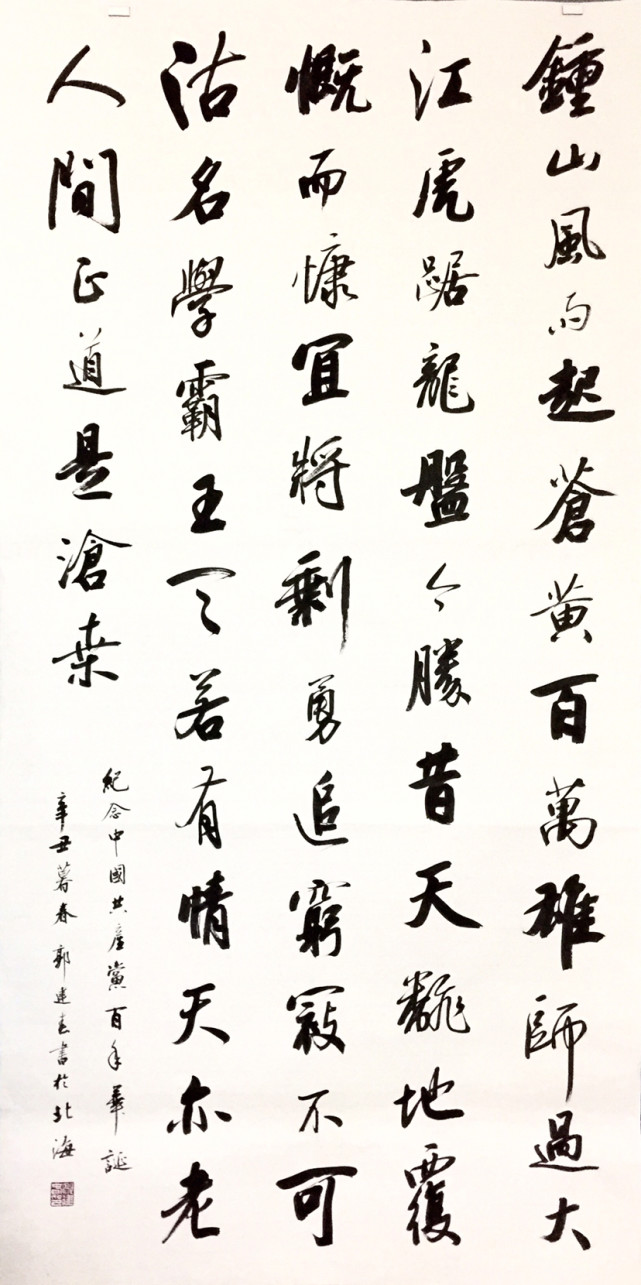 鍾山風雨起蒼黃百萬雄師過大
江虎踞龍盤今勝昔天飜地覆
慨而慷宜將剩勇追窮寇不可
沽名學霸王天若有情天亦老
人間正道是滄桑
紀念中國共產黨百年華誕
辛丑暮春郭書於北海